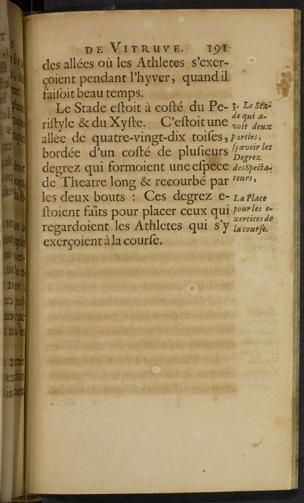 DE VITRUVE. 191
des allées où les Athletes s'exer-
çoient pendant l'hyver, quand il
faisoit beau temps.
Le Stade estoit à costé du Pe-
ristyle & du Xyste. C'estoit une
allée de quatre-vingt-dix toises,
bordée d'un costé de plusieurs
degrez qui formoient une espece
de Theatre long & recourbé par
les deux bouts : Ces degrez e-
stoient faits pour placer ceux qui
regardoient les Athletes qui s'y
exerçoient à la course.
3. Le Sta-
de qui a-
voit deux
parties,
sçavoir les
Degrez
des Specta-
teurs,
La Place
pour les e-
xercices de
la course.